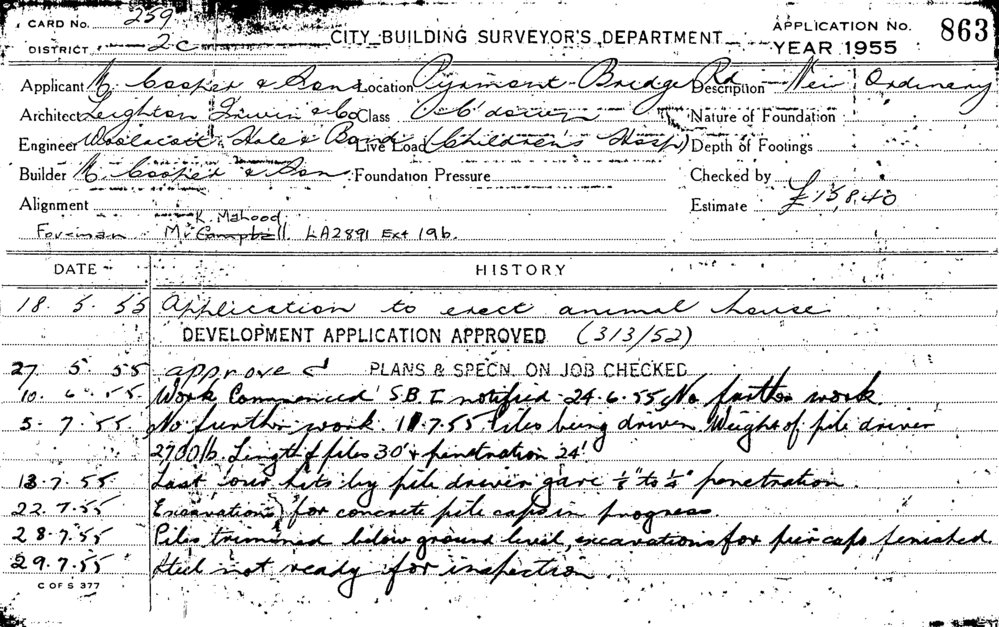 CARD No. 259
DISTRICT 2c
CITY BUILDING SURVEYOR'S DEPARTMENT
APPLICATION No. 863
YEAR 1955
Applicant H. Cooper & Sons Location Pyrmont Bridge Rd Description New Ordinary
Architect Leighton Irwin & Co Class C'down Nature of Foundation
Engineer Woolacott Hale & Bond Live Load (Children's Hosp) Depth of Footings
Builder H. Cooper & Son Foundation Pressure Checked by
Alignment Estimate £15,840
K. Mahood
Foreman Mr Campbell LA2891 Ext 196.
DATE HISTORY
18. 5. 55 Application to erect animal house
DEVELOPMENT APPLICATION APPROVED (313/52)
27 5. 55 approved PLANS & SPECN. ON JOB CHECKED
10. 6. 55. Work Commenced S.B.I. notified 24-6-55 No further work
5. 7. 55. No further work. 11 7.55 Piles being driven Weight of pile driver
2700lb. Length of piles 30' & penetration 24'
13. 7. 55. Last four hits by pile driver gave ½" to ¼" penetration.
22. 7.55 Excavations for concrete pile caps in progress.
28.7.55 Piles trimmed below ground level, excavations for pier caps finished.
29.7.55 Steel not ready for inspection.
C OF S 377